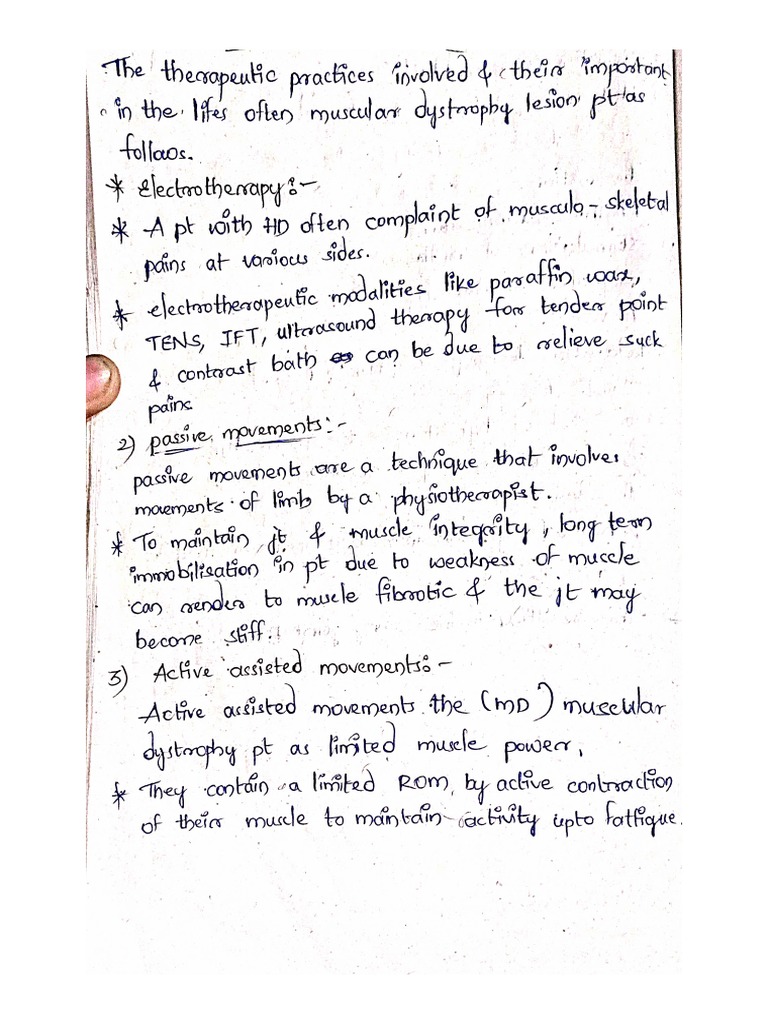 The therapeutic practices involved & their important
in the lifes often muscular dystrophy lesion pt as
follows.
* Electrotherapy:-
* A pt with HD often complaint of musculo-skeletal
pains at various sides.
* electrotherapeutic modalities like paraffin wax,
TENS, IFT, ultrasound therapy for tender point
& contrast bath can be due to relieve suck
pains
2) passive movements:-
passive movements are a technique that involves
movements of limb by a physiotherapist.
* To maintain jt & muscle integrity, long term
immobilisation in pt due to weakness of muscle
can render to muscle fibrotic & the jt may
become stiff.
3) Active assisted movements:-
Active assisted movements the (MD) muscular
dystrophy pt as limited muscle power,
* They contain a limited ROM, by active contraction
of their muscle to maintain activity upto fattigue.